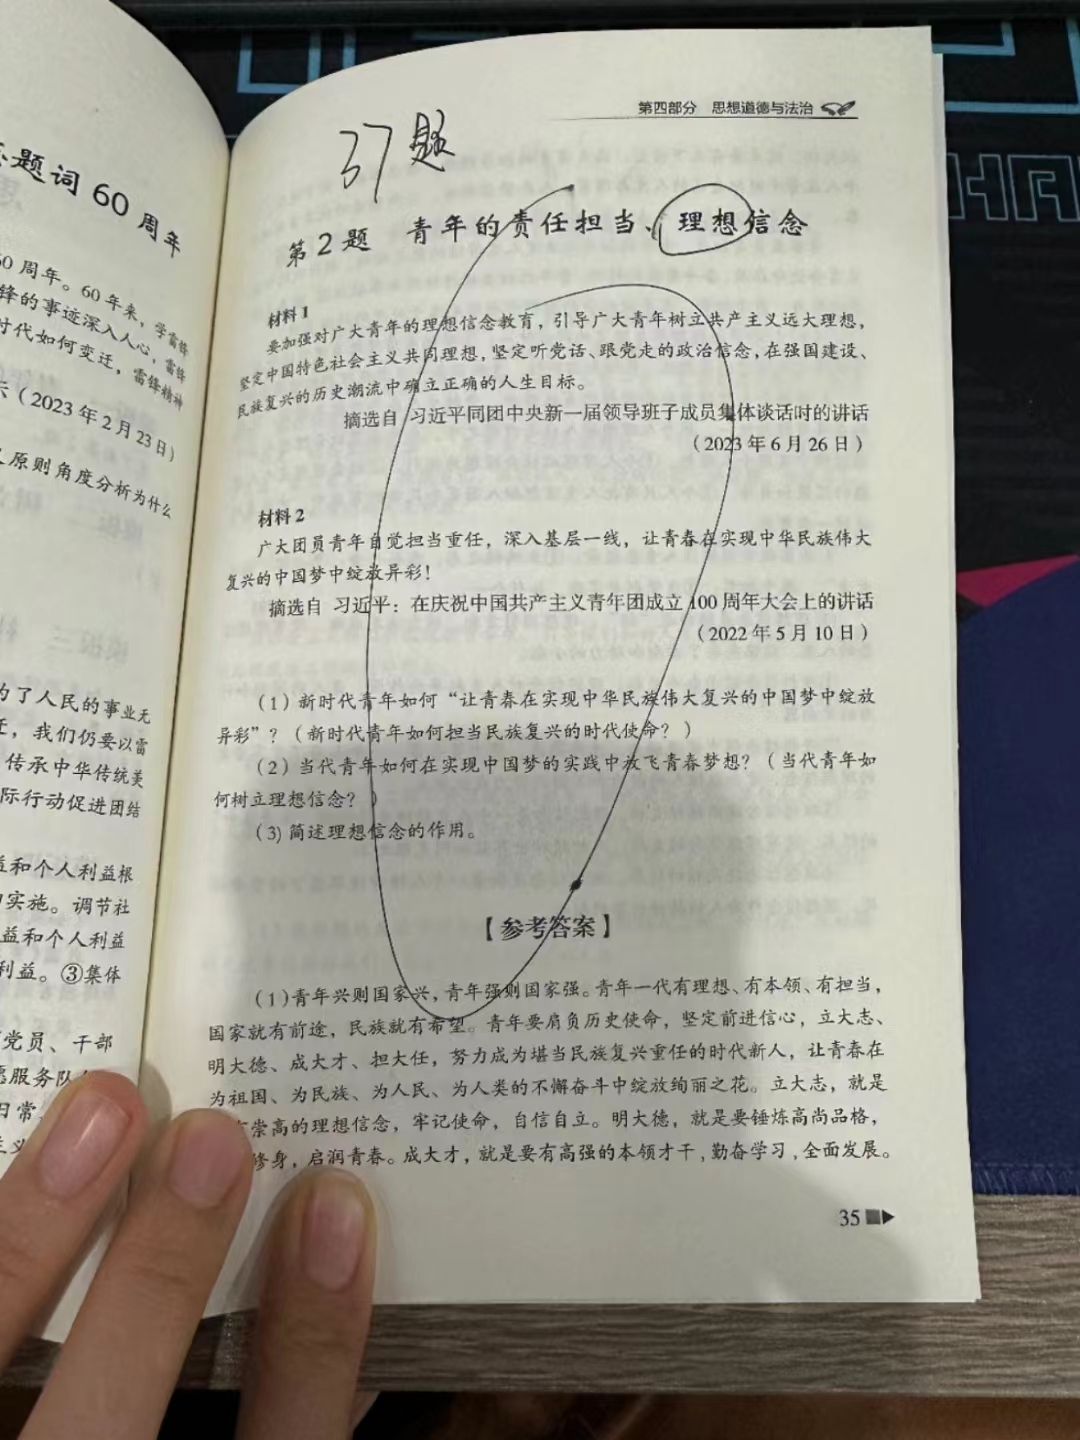 题词60周年
60周年。60年来，学雷锋
锋的事迹深入人心，雷锋
时代如何变迁，雷锋精神
示（2023年2月23日）
原则角度分析为什么
为了人民的事业无
迁，我们仍要以雷
传承中华传统美
际行动促进团结
益和个人利益根
实施。调节社
益和个人利益
利益。③集体
党员、干部
愿服务队
日常
主义
第四部分 思想道德与法治
37题
第2题 青年的责任担当、理想信念
材料1
要加强对广大青年的理想信念教育，引导广大青年树立共产主义远大理想，
坚定中国特色社会主义共同理想，坚定听党话、跟党走的政治信念，在强国建设、
民族复兴的历史潮流中确立正确的人生目标。
摘选自 习近平同团中央新一届领导班子成员集体谈话时的讲话
（2023年6月26日）
材料2
广大团员青年自觉担当重任，深入基层一线，让青春在实现中华民族伟大
复兴的中国梦中绽放异彩！
摘选自 习近平：在庆祝中国共产主义青年团成立100周年大会上的讲话
（2022年5月10日）
（1）新时代青年如何“让青春在实现中华民族伟大复兴的中国梦中绽放
异彩”？（新时代青年如何担当民族复兴的时代使命？）
（2）当代青年如何在实现中国梦的实践中放飞青春梦想？（当代青年如
何树立理想信念？）
（3）简述理想信念的作用。
【参考答案】
（1）青年兴则国家兴，青年强则国家强。青年一代有理想、有本领、有担当，
国家就有前途，民族就有希望。青年要肩负历史使命，坚定前进信心，立大志、
明大德、成大才、担大任，努力成为堪当民族复兴重任的时代新人，让青春在
为祖国、为民族、为人民、为人类的不懈奋斗中绽放绚丽之花。立大志，就是
崇高的理想信念，牢记使命，自信自立。明大德，就是要锤炼高尚品格，
修身，启润青春。成大才，就是要有高强的本领才干，勤奋学习，全面发展。
35